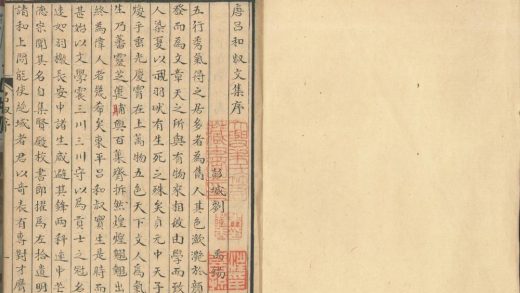 唐呂和叔文集序
彭城劉 禹錫
五行秀氣得之居多者為雋人其色瀲灩於顏
發而為文章天之所與有物來相啟由學而致
人染夏以視羽畎有生死之殊矣貞元中天子
煥乎垂光慶霄在上萬物五色天下文人為氣
生乃蕃靈芝萐莆與百菓齊拆然煌煌翹翹出
終為偉人者幾希矣東平呂和叔實生是時而
甚始以文學震三川三川守以為貢士之冠名
速如羽檄長安中諸生咸避其鋒兩科連中芒
德宗聞其名自集賢殿校書郎擢為左拾遺明
請和上問能使絕域者君以奇表有專對才膺